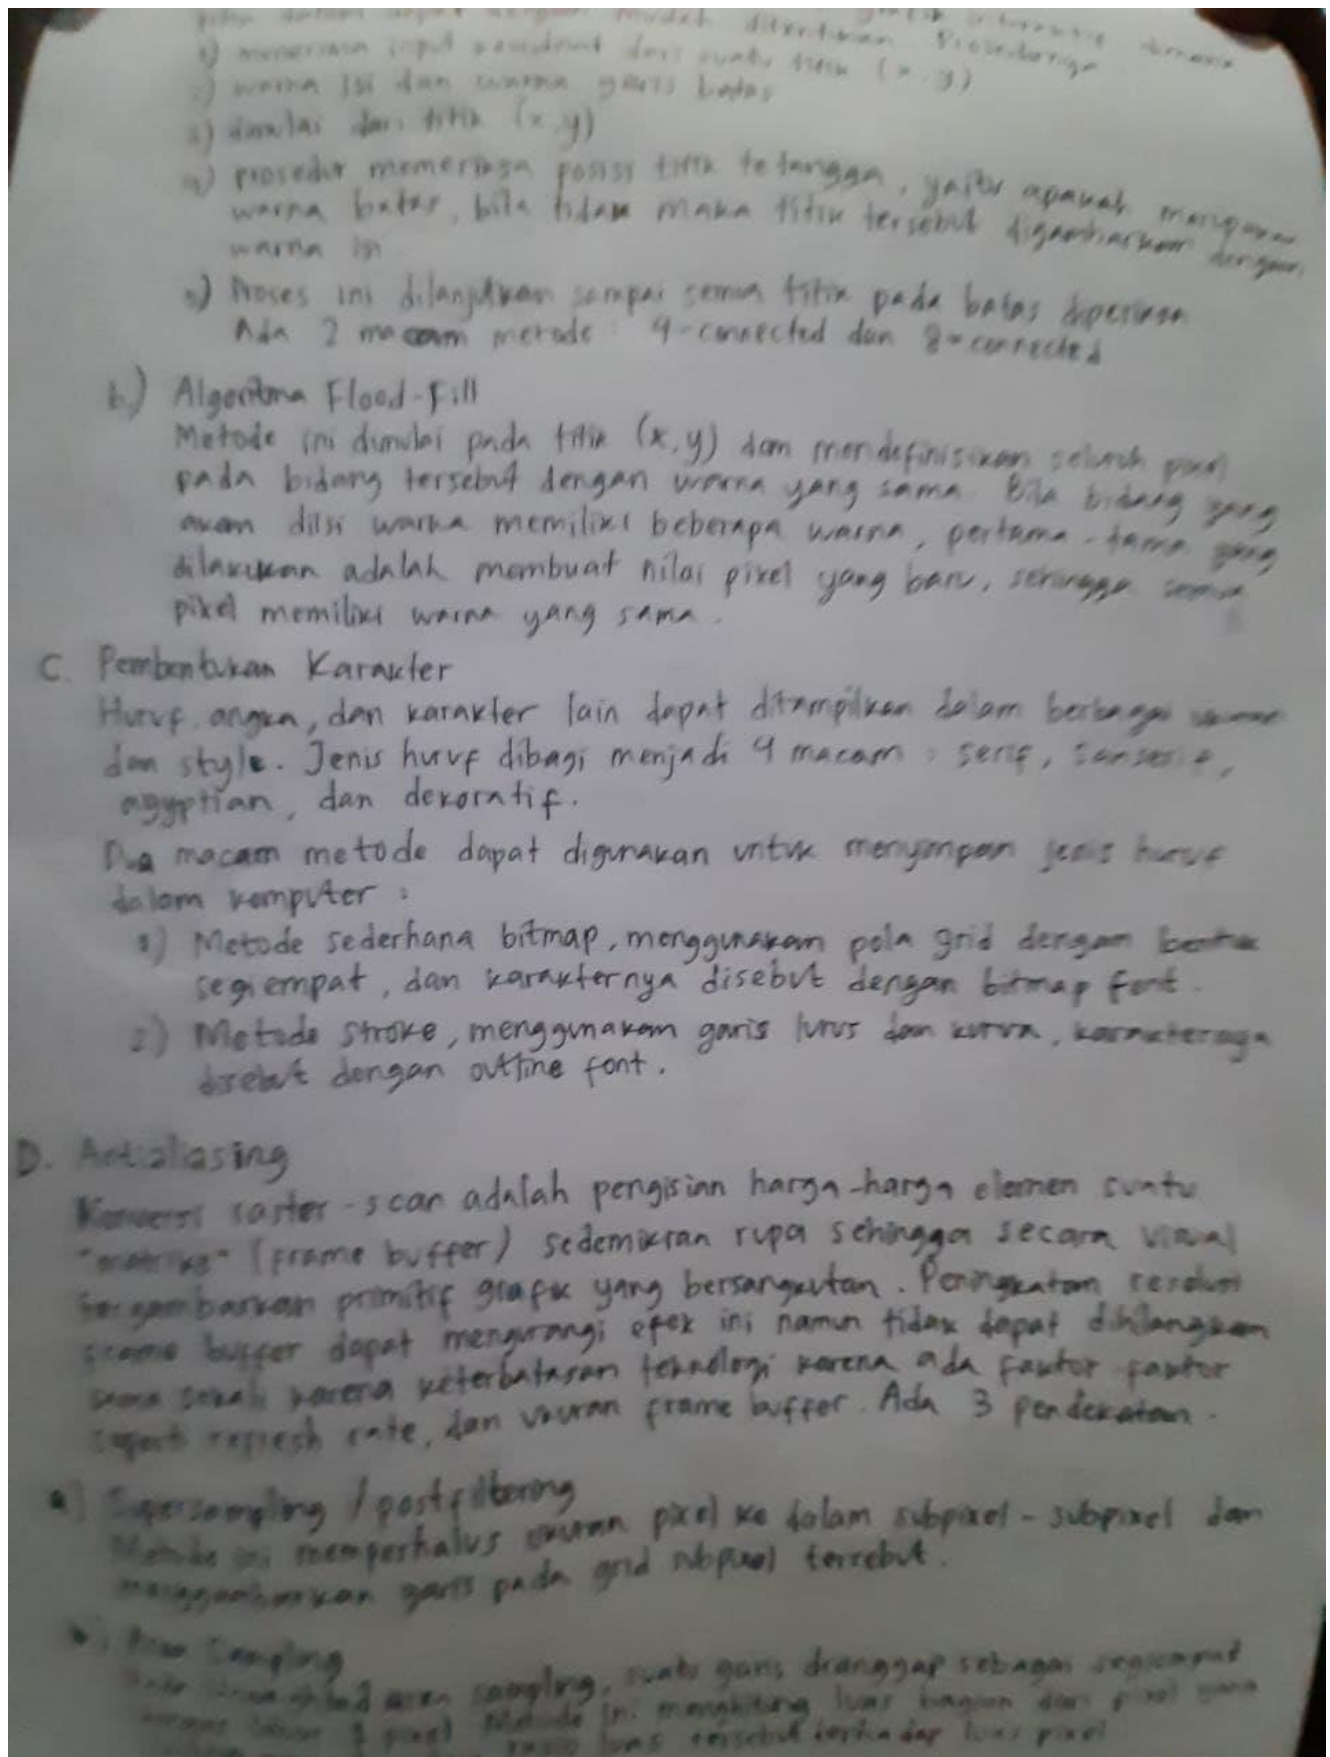 dapat dengan mudah ditentukan Prosedurnya
1) menerima input koordinat dari suatu titik (x, y)
2) warna isi dan warna garis batas
3) dimulai dari titik (x, y)
4) prosedur memeriksa posisi titik tetangga, yaitu apakah merupakan
warna batas, bila tidak maka titik tersebut digambarkan dengan
warna isi
5) Proses ini dilanjutkan sampai semua titik pada batas diperiksa
Ada 2 macam metode : 4-connected dan 8-connected
b.) Algoritma Flood-Fill
Metode ini dimulai pada titik (x, y) dan mendefinisikan seluruh pixel
pada bidang tersebut dengan warna yang sama. Bila bidang yang
akan diisi warna memiliki beberapa warna, pertama-tama yang
dilakukan adalah membuat nilai pixel yang baru, sehingga semua
pixel memiliki warna yang sama.
C. Pembentukan Karakter
Huruf, angka, dan karakter lain dapat ditampilkan dalam berbagai
dan style. Jenis huruf dibagi menjadi 4 macam : serif, sanserif,
agyptian, dan dekoratif.
Dua macam metode dapat digunakan untuk menyimpan jenis huruf
dalam komputer :
1) Metode sederhana bitmap, menggunakan pola grid dengan bentuk
segiempat, dan karakternya disebut dengan bitmap font.
2) Metode stroke, menggunakan garis lurus dan kurva, karakternya
disebut dengan outline font.
D. Antialiasing
Konversi raster-scan adalah pengisian harga-harga elemen suatu
"matriks" (frame buffer) sedemikian rupa sehingga secara visual
tergambarkan primitif grafik yang bersangkutan. Peningkatan resolusi
frame buffer dapat mengurangi efek ini namun tidak dapat dihilangkan
sama sekali karena keterbatasan teknologi karena ada faktor faktor
seperti refresh rate, dan ukuran frame buffer. Ada 3 pendekatan.
a) Supersampling / postfiltering
Metode ini memperhalus ukuran pixel ke dalam subpixel-subpixel dan
menggambarkan garis pada grid subpixel tersebut.
b) Area Sampling
area sampling, suatu garis dianggap sebagai segiempat
1 pixel. Metode ini menghitung luas bagian dari pixel yang
rasio luas tersebut terhadap luas pixel